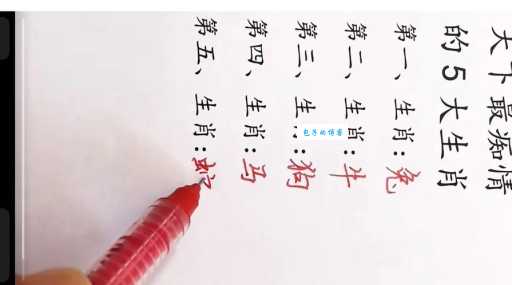 天下最痴情
的5大生肖
第一、生肖:兔
第二、生肖:牛
第三、生:狗
第四、生肖:马
第五、生肖:蛇
包子的博客